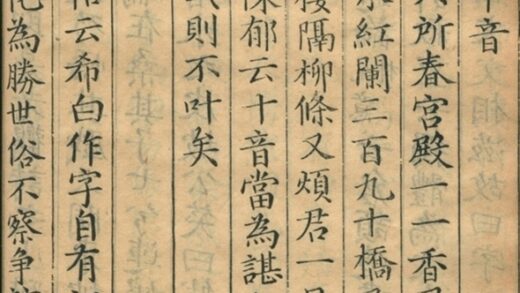 音
所春宮殿一一香
水紅闌三百九十橋
隔柳條又煩君一
陳郁云十音當為諶
則不叶矣
云希白作字自有
為勝世俗不察爭